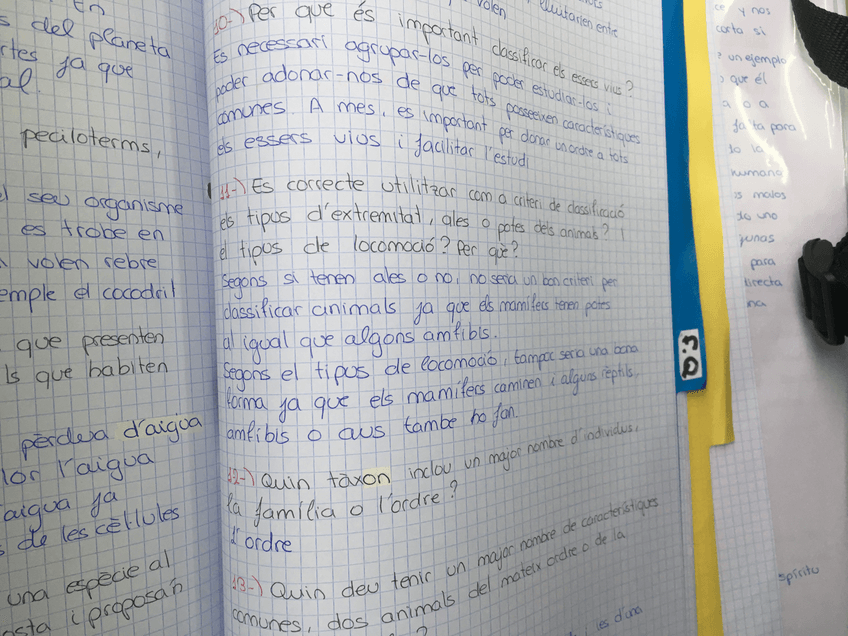 En
s del planeta
rtes ja que
al.
peciloterms,
el seu organisme
es trobe en
volen rebre
emple el cocodril
que presenten
ls que habiten
pèrdua d'aigua
lor l'aigua
aigua ja
s de les cèl·lules
una espècie al
osta i proposan
volen
lluitarien entre
10-) Per que és important classificar els essers vius?
Es necessari agrupar-los per poder estudiar-los i
poder adonar-nos de que tots posseeixen característiques
comunes. A mes, es important per donar un ordre a tots
els essers vius i facilitar l'estudi
11-) Es correcte utilitzar com a criteri de classificació
els tipus d'extremitat, ales o potes dels animals? I
el tipus de locomoció? Per què?
Segons si tenen ales o no, no seria un bon criteri per
classificar animals ja que els mamifers tenen potes
al igual que algons amfibis.
Segons el tipus de locomoció, tampoc seria una bona
forma ja que els mamifers caminen i alguns rèptils,
amfibis o aus tambe ho fan.
12-) Quin taxon inclou un major nombre d'individus,
la família o l'ordre?
l'ordre
13-) Quin deu tenir un major nombre de característiques
comunes, dos animals del mateix ordre o de la
?
les d'una
ce y nos
carta si
un ejemplo
que él
a o a
falta para
do la
humano
s malos
de uno
junas
para
directa
na
espíritu